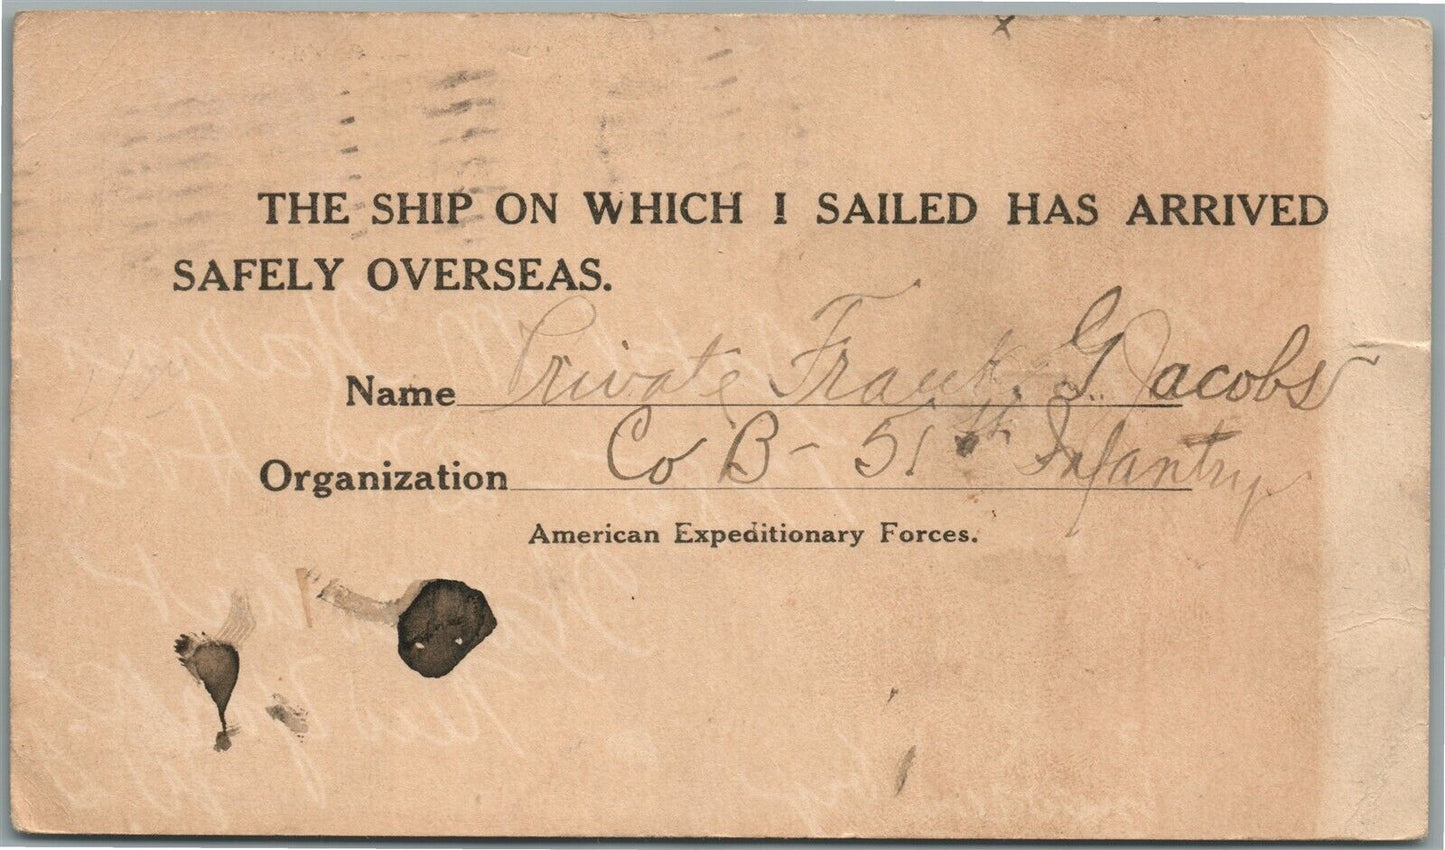 THE SHIP ON WHICH I SAILED HAS ARRIVED
SAFELY OVERSEAS.
Name Private Frank. G. Jacobs
Organization Co B - 51st Infantry
American Expeditionary Forces.